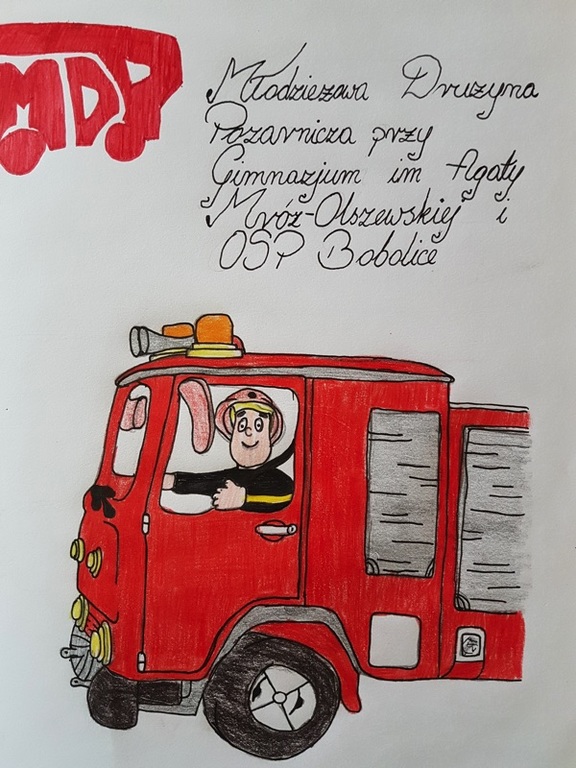 MDP
Młodzieżowa Drużyna
Pożarnicza przy
Gimnazjum im Agaty
Mróz-Olszewskiej i
OSP Bobolice